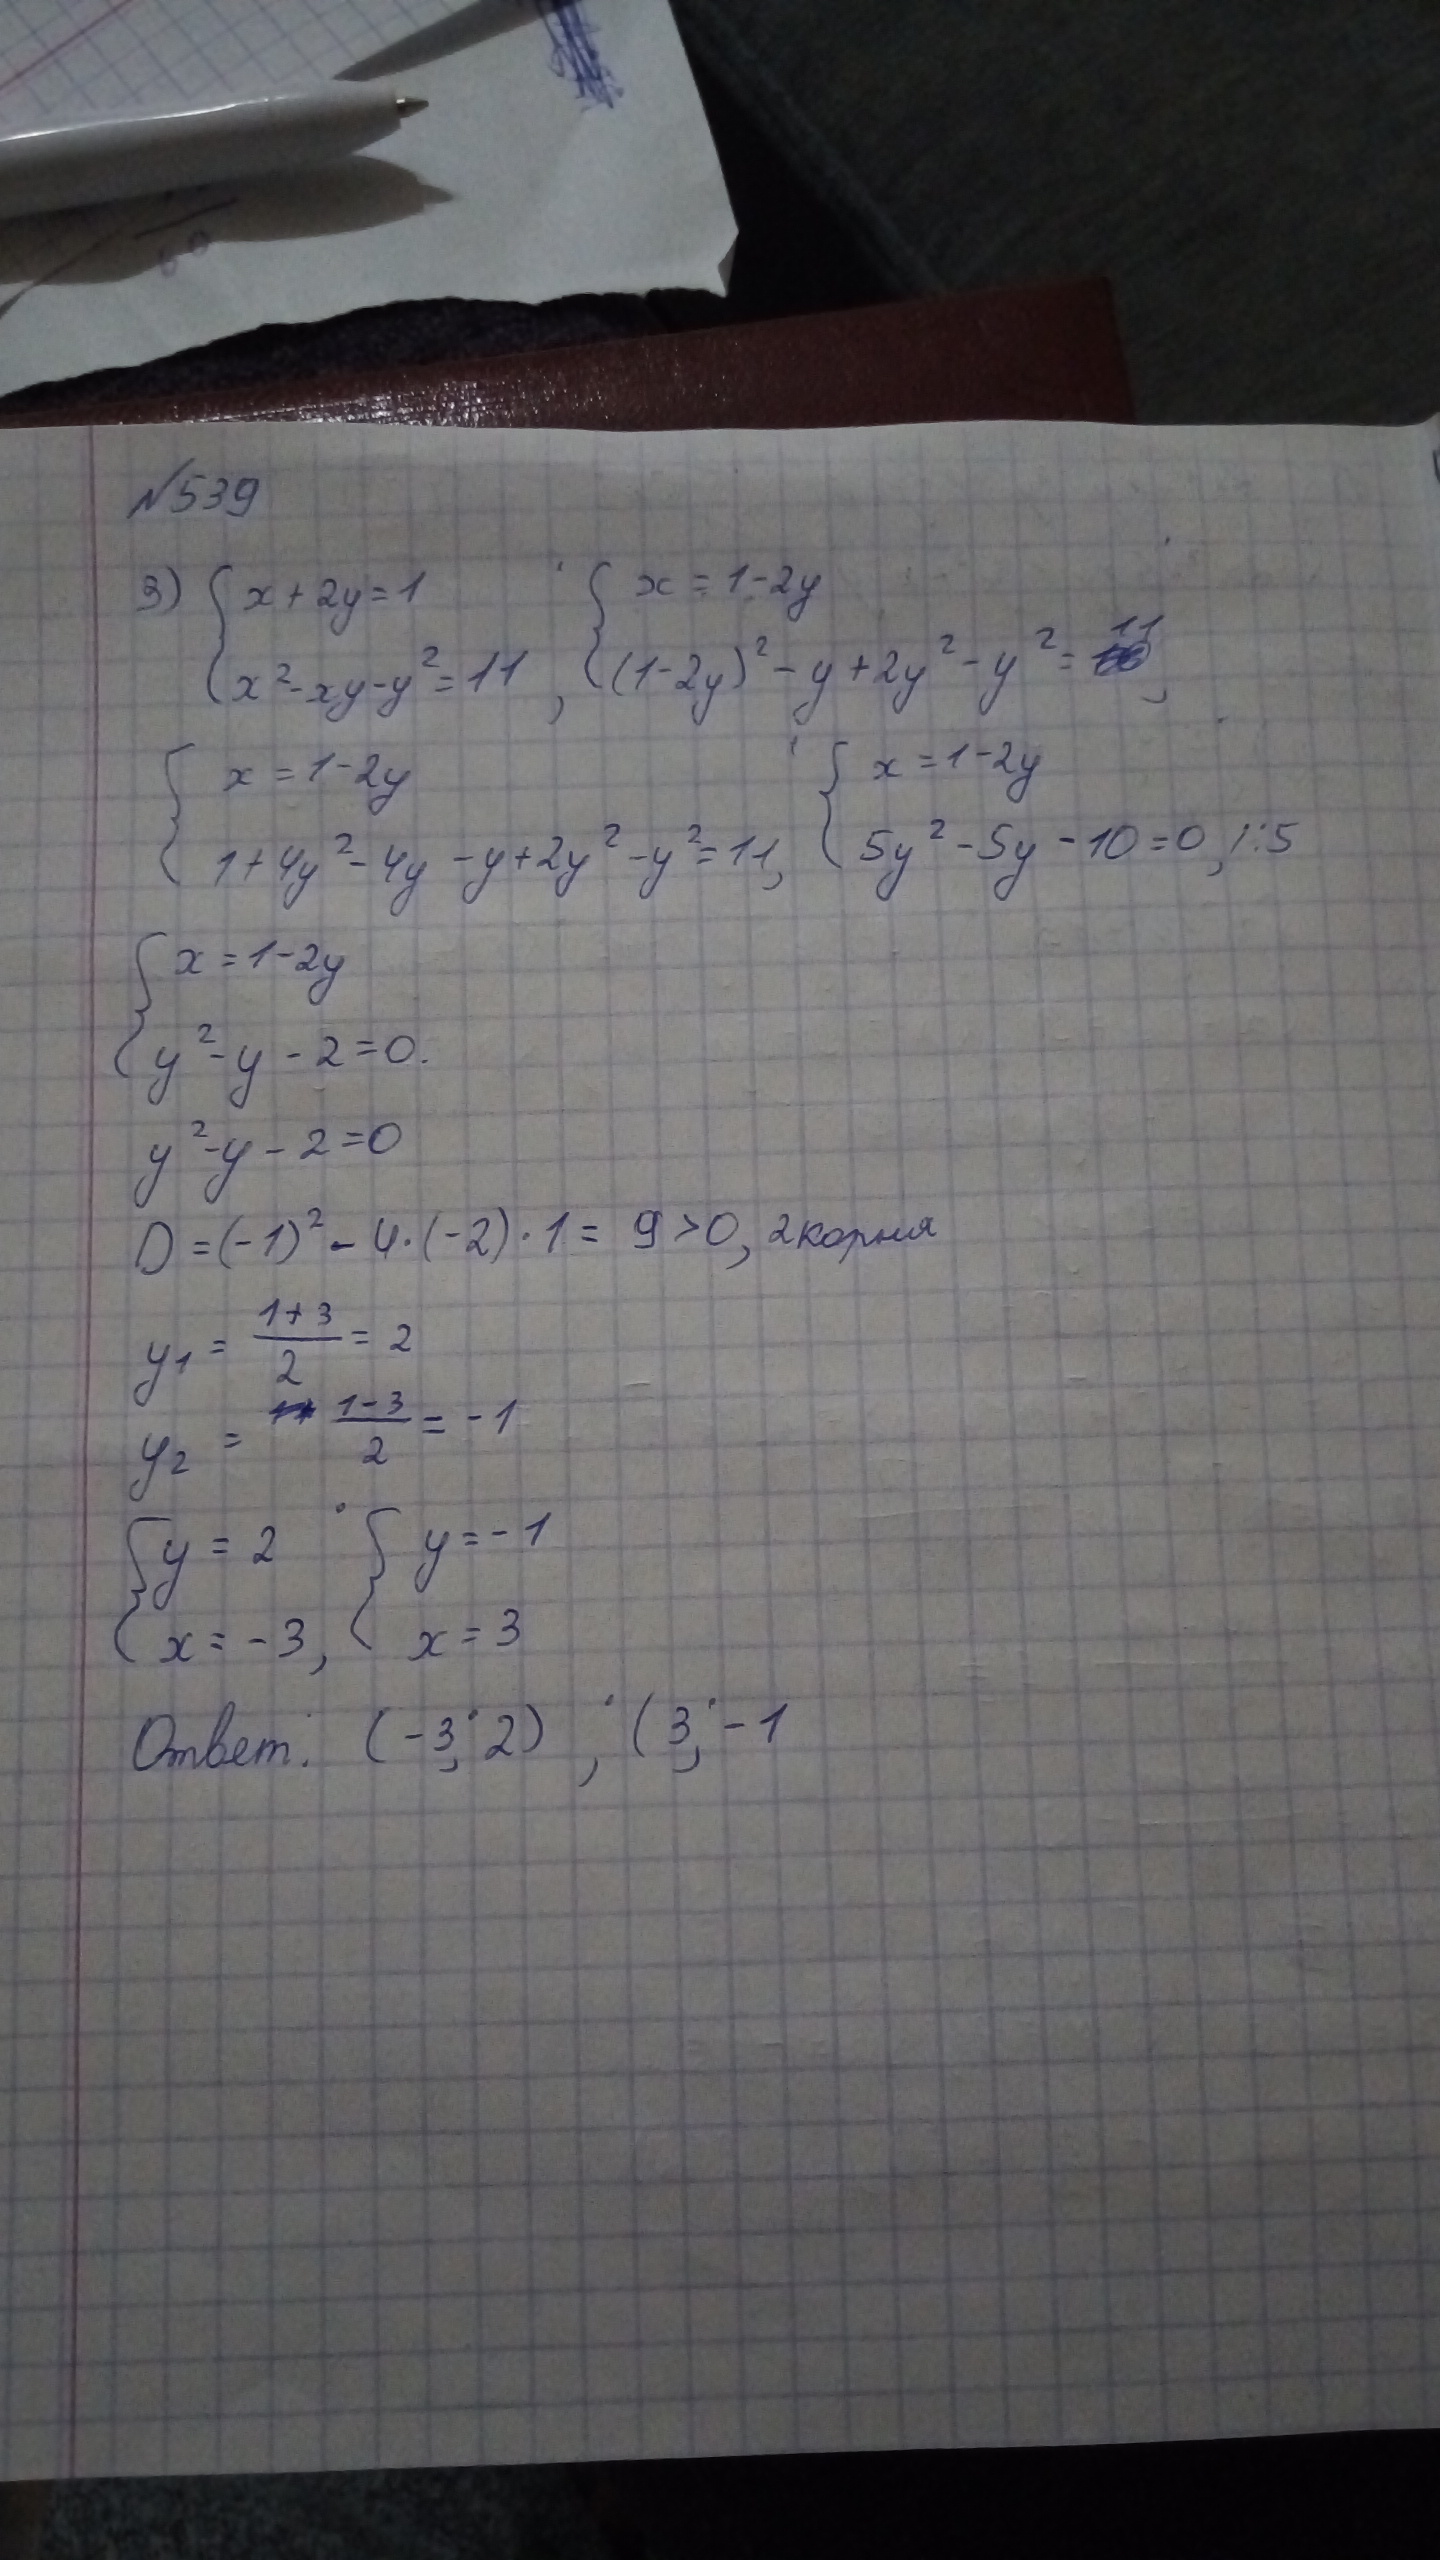 №539
3) { x + 2y = 1 ; { x = 1 - 2y
x² - xy - y² = 11 (1 - 2y)² - y + 2y² - y² = 11 ;
{ x = 1 - 2y ; { x = 1 - 2y
1 + 4y² - 4y - y + 2y² - y² = 11 5y² - 5y - 10 = 0, |:5
{ x = 1 - 2y
y² - y - 2 = 0.
y² - y - 2 = 0
D = (-1)² - 4·(-2)·1 = 9 > 0, 2 корня
y₁ = (1+3)/2 = 2
y₂ = (1-3)/2 = -1
{ y = 2 ; { y = -1
x = -3 x = 3
Ответ: (-3; 2) ; (3; -1